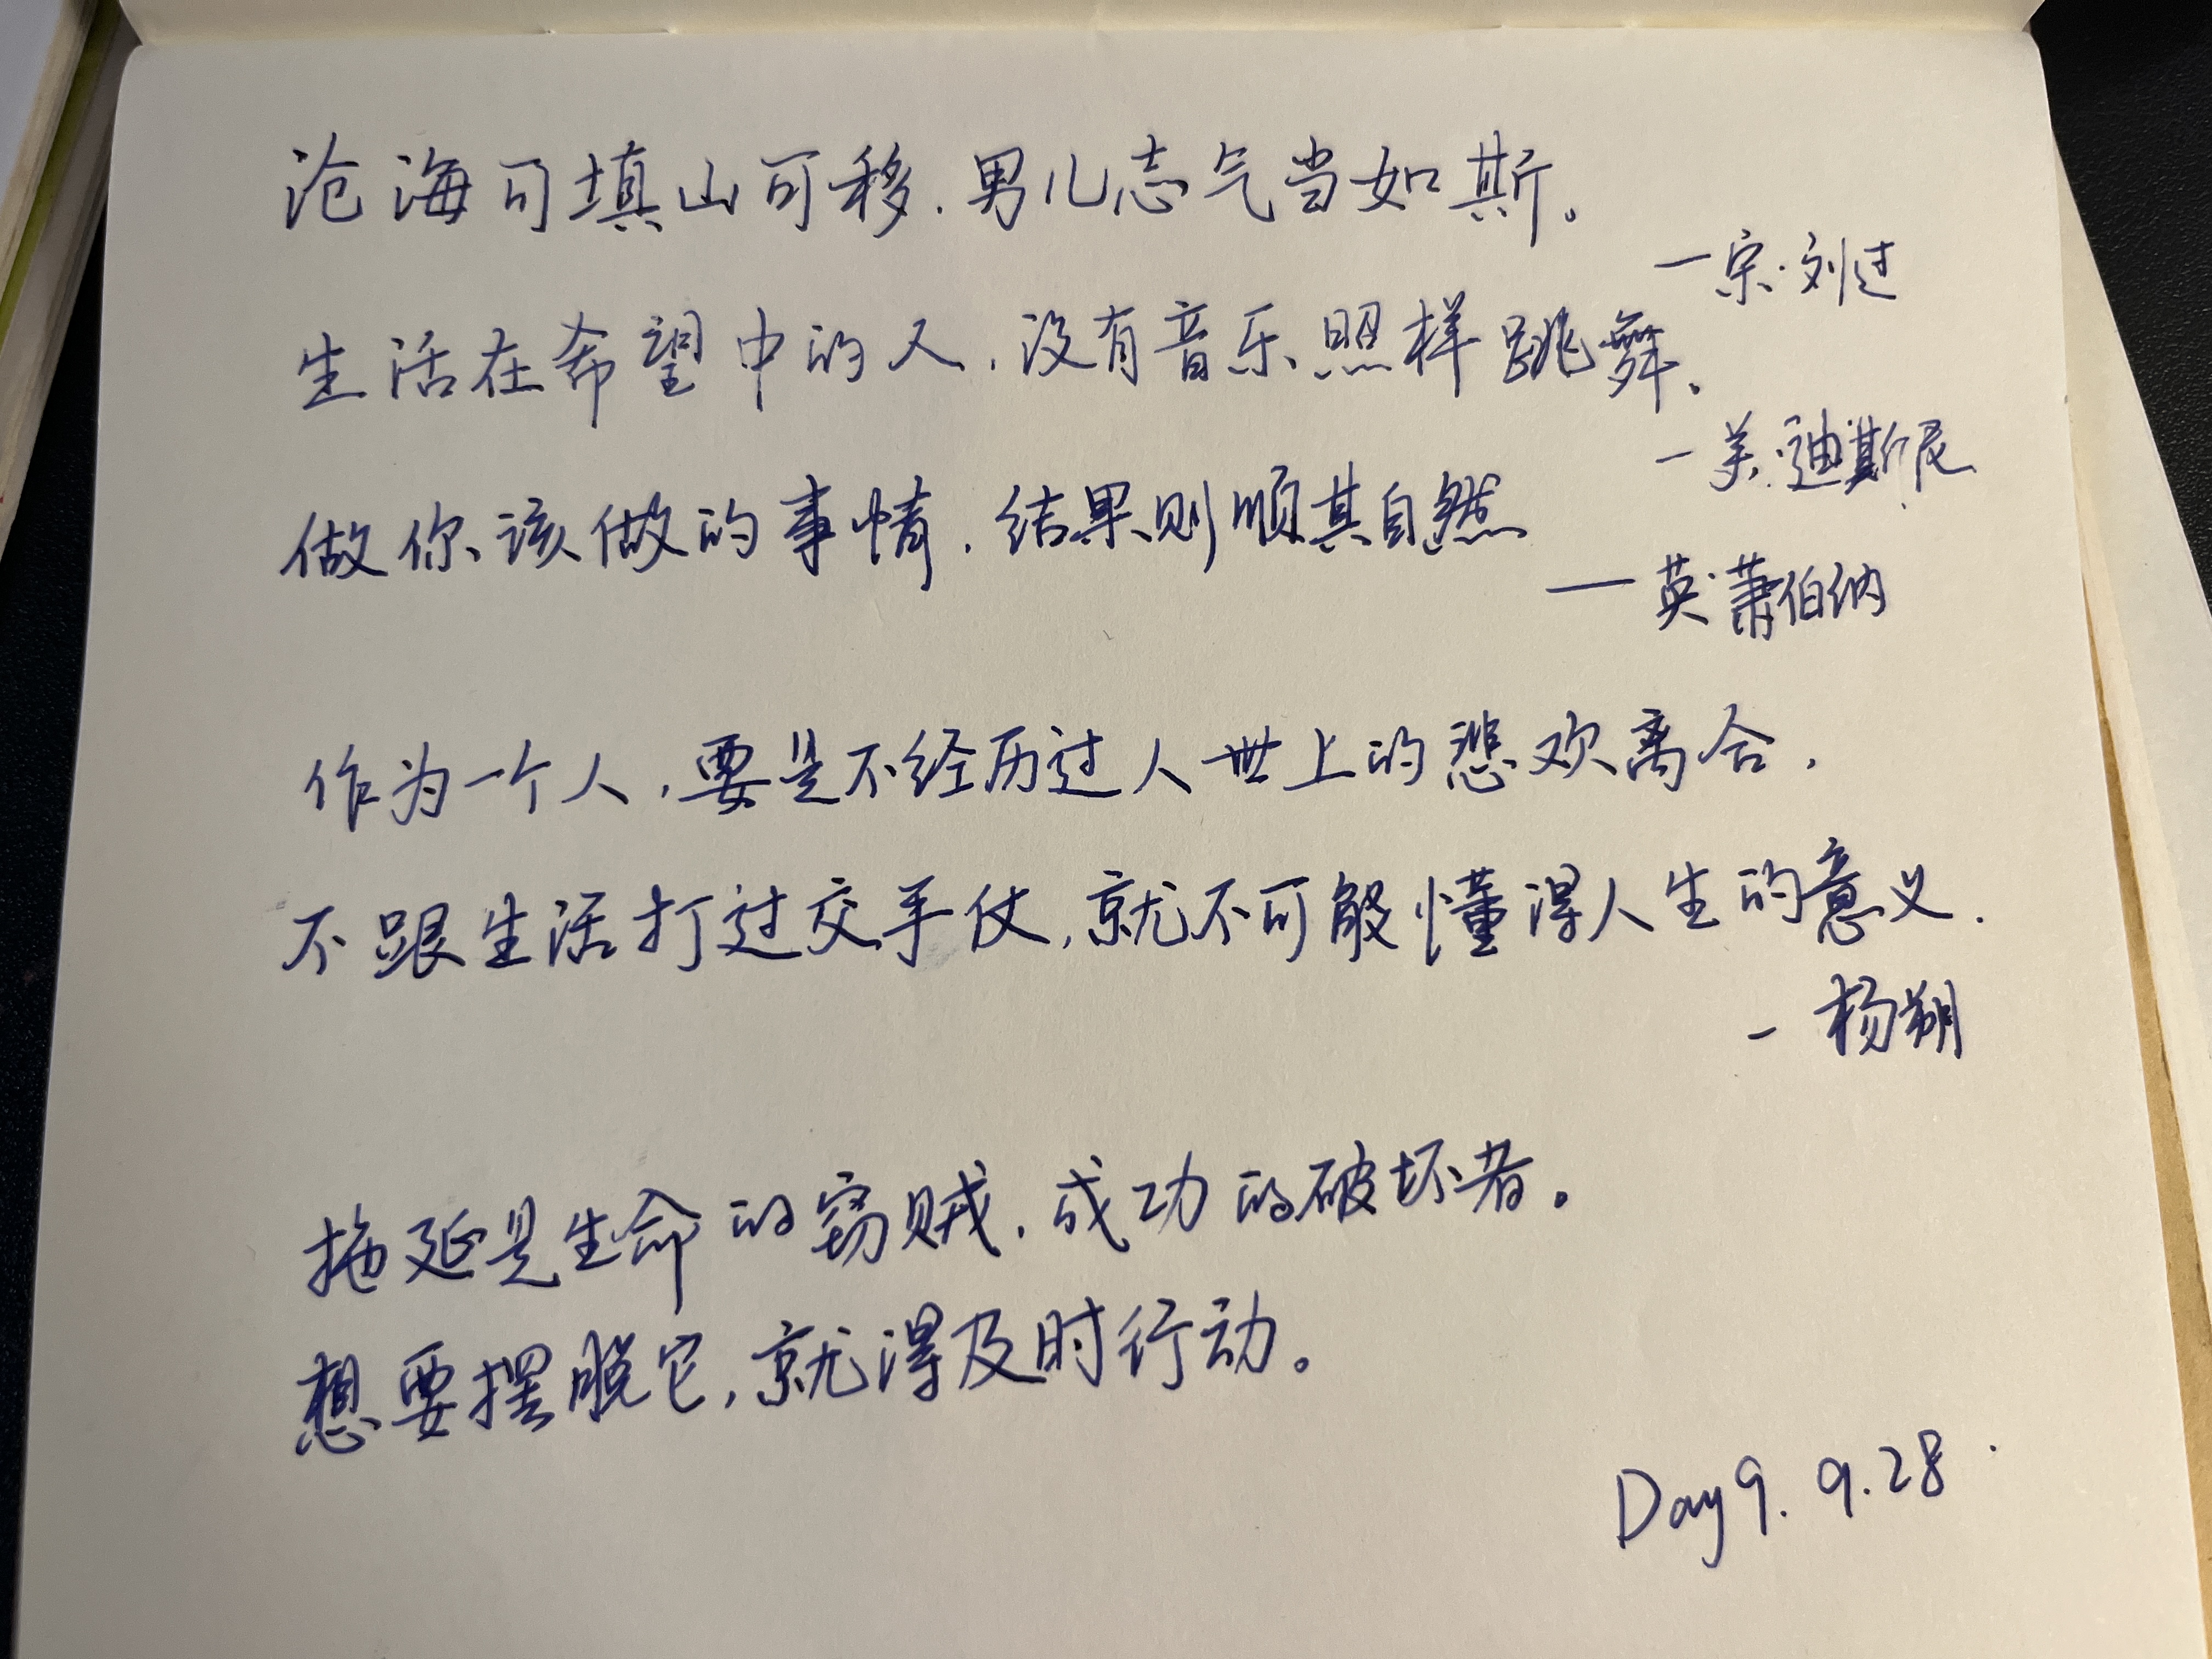 沧海可填山可移，男儿志气当如斯。
—宋·刘过
生活在希望中的人，没有音乐照样跳舞。
—美·迪斯尼
做你该做的事情，结果则顺其自然
——英·萧伯纳
作为一个人，要是不经历过人世上的悲欢离合，
不跟生活打过交手仗，就不可能懂得人生的意义.
—杨朔
拖延是生命的窃贼，成功的破坏者。
想要摆脱它，就得及时行动。
Day9. 9.28.